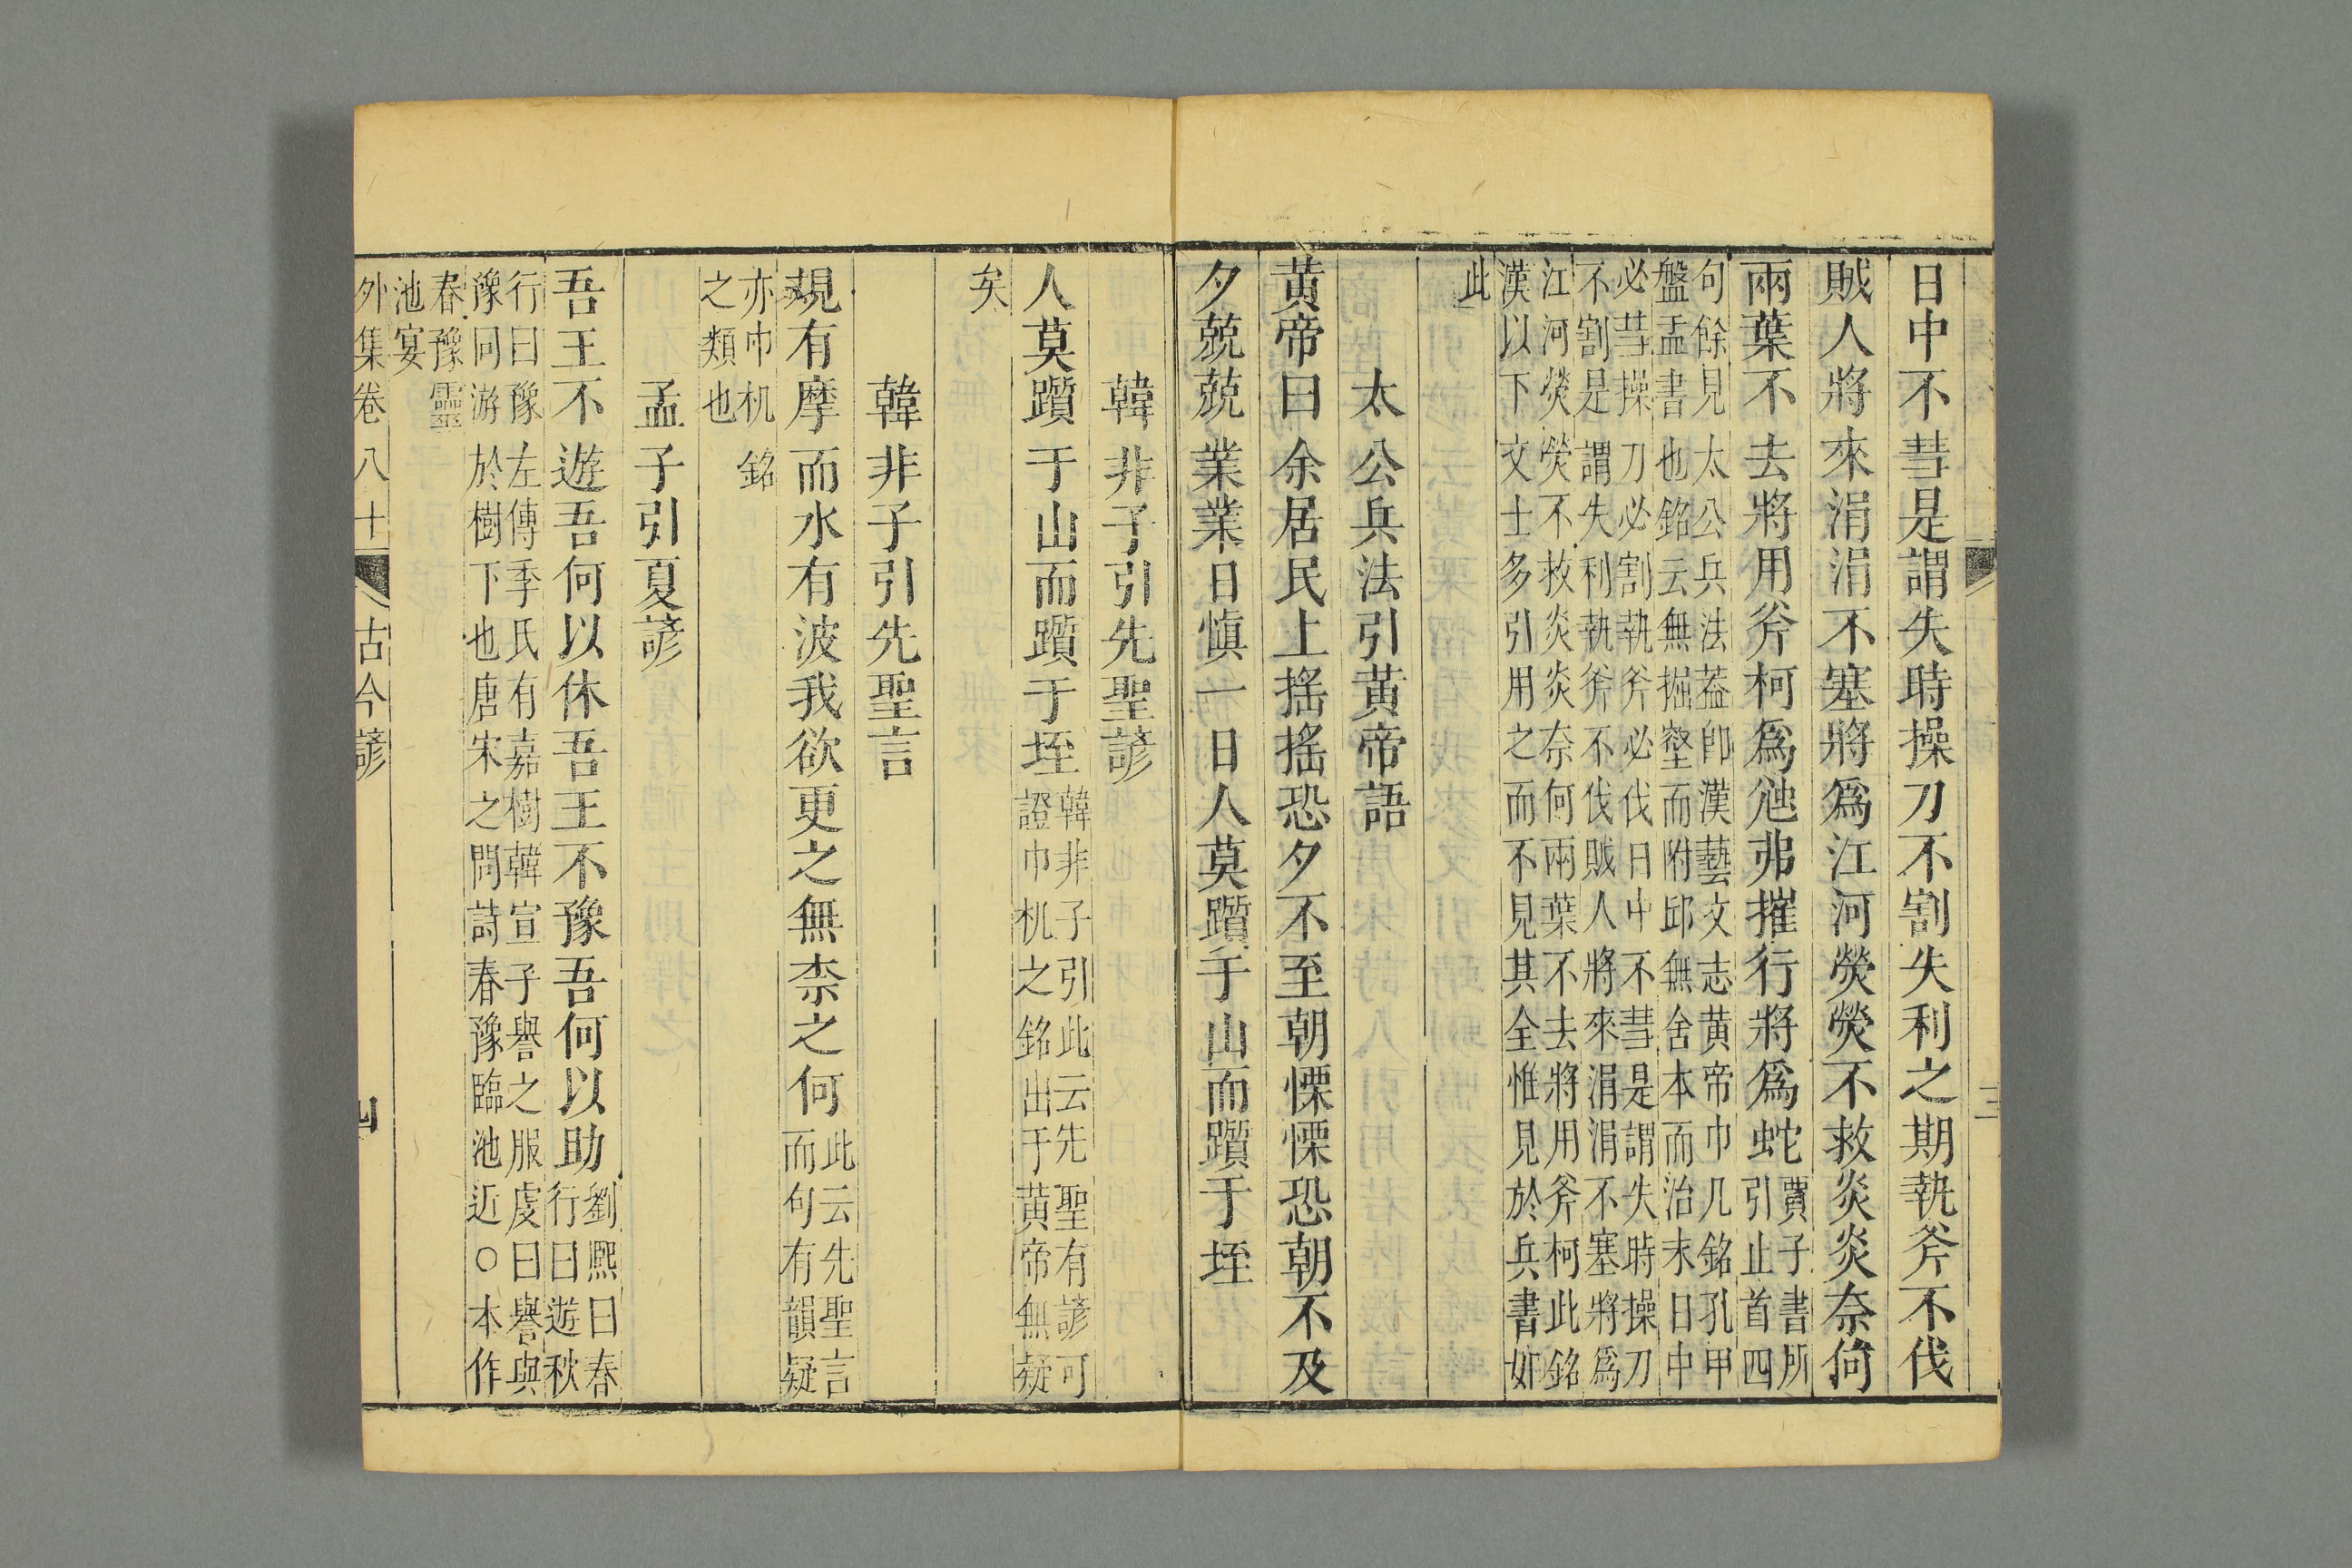 日中不彗是謂失時操刀不割失利之期執斧不伐
賊人將來涓涓不塞將爲江河熒熒不救炎炎奈何
兩葉不去將用斧柯爲虺弗摧行將爲蛇賈子書所
引止首四
句餘見太公兵法葢卽漢藝文志黄帝巾几銘孔甲
盤盂書也銘云無掘壑而附邱無舍本而治末日中
必彗操刀必割執斧必伐日中不彗是謂失時操刀
不割是謂失利執斧不伐賊人將來涓涓不塞將爲
江河熒熒不救炎炎奈何兩葉不去將用斧柯此銘
漢以下文士多引用之而不見其全惟見於兵書如
此
太公兵法引黃帝語
黄帝曰余居民上搖搖恐夕不至朝慄慄恐朝不及
夕兢兢業業日愼一日人莫躓于山而躓于垤
韓非子引先聖諺
人莫躓于山而躓于垤韓非子引此云先聖有諺可
證巾机之銘出于黄帝無疑
矣
韓非子引先聖言
規有摩而水有波我欲更之無柰之何此云先聖言
而句有韻疑
亦巾机銘
之類也
孟子引夏諺
吾王不遊吾何以休吾王不豫吾何以助劉熙曰春
行曰遊秋
行曰豫左傳季氏有嘉樹韓宣子譽之服虔曰譽與
豫同游於樹下也唐宋之問詩春豫臨池近○本作
春豫靈
池宴
外集卷八十
古今諺
四